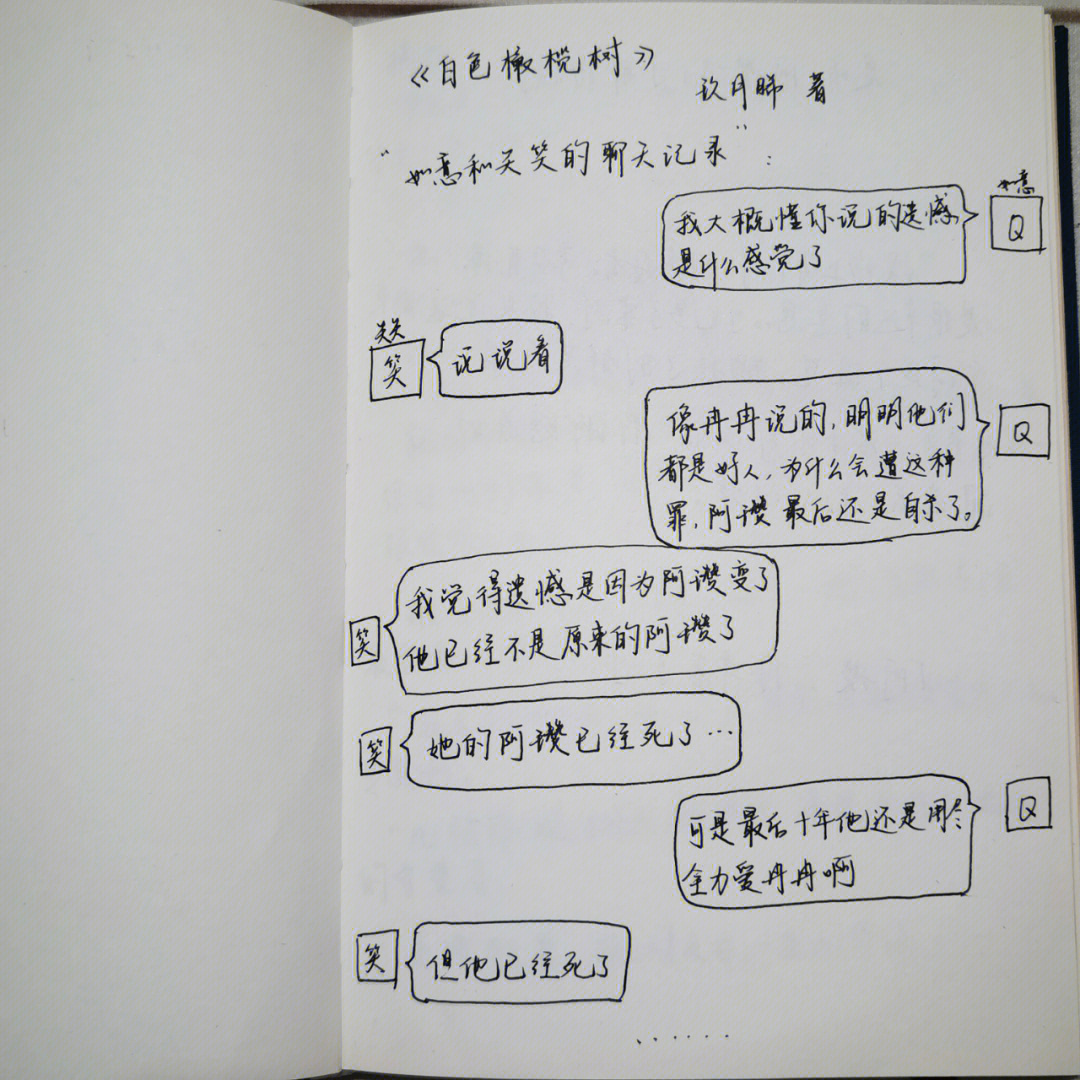 《白色橄榄树》
玖月晞 著
“如意和关笑的聊天记录”:
如意
Q
我大概懂你说的遗憾
是什么感觉了
关关
笑
说说看
Q
像冉冉说的,明明他们
都是好人,为什么会遭这种
罪,阿瓒最后还是自杀了。
笑
我觉得遗憾是因为阿瓒变了
他已经不是原来的阿瓒了
笑
她的阿瓒已经死了…
Q
可是最后十年他还是用
全力爱冉冉啊
笑
但他已经死了
......